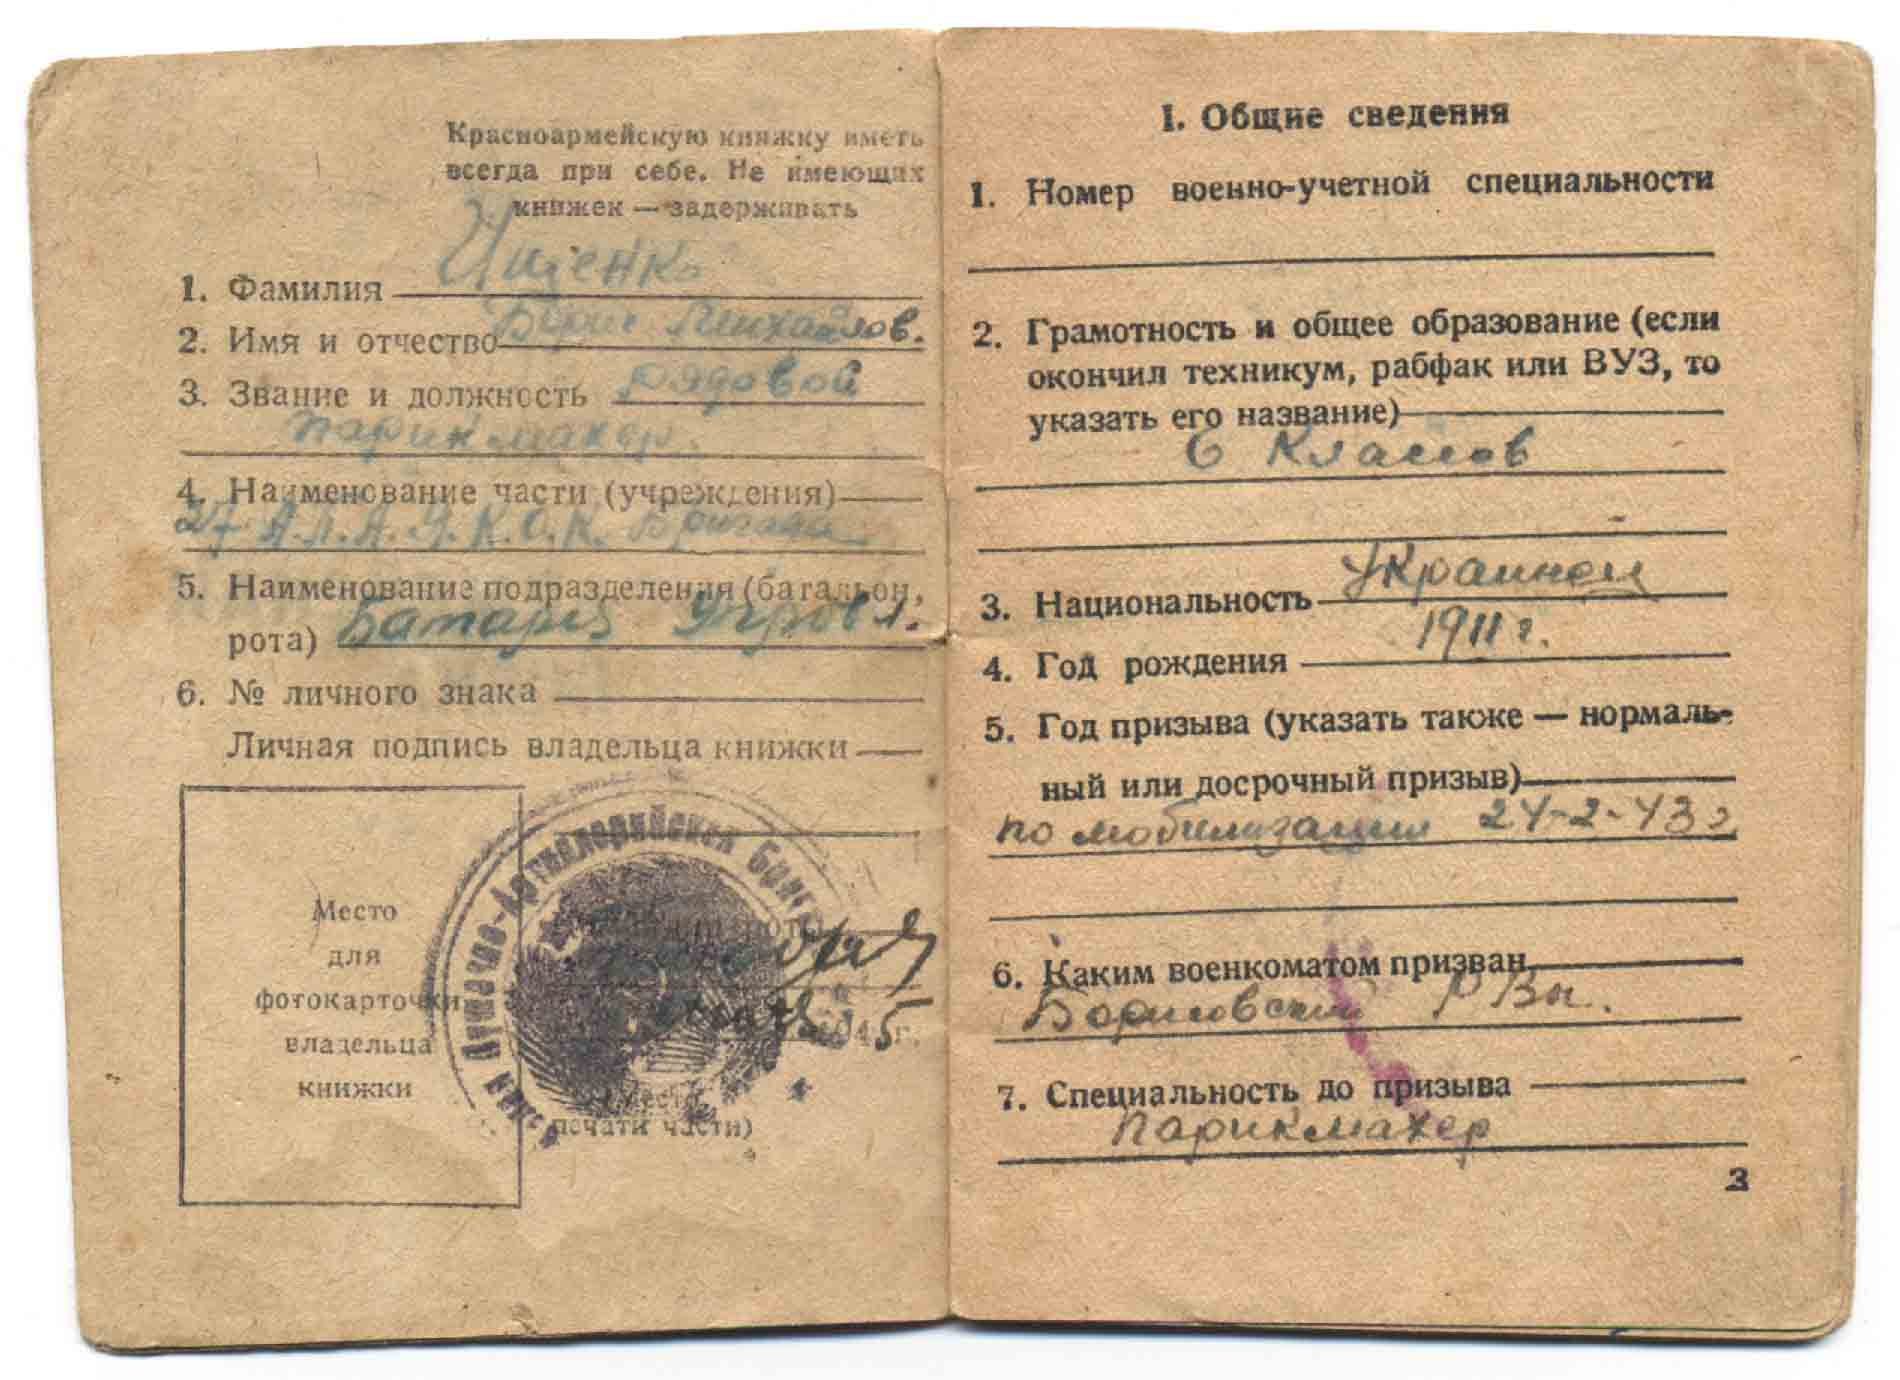 Красноармейскую книжку иметь
всегда при себе. Не имеющих
книжек — задерживать
1. Фамилия Ищенко
2. Имя и отчество Борис Михайлов.
3. Звание и должность рядовой
парикмахер.
4. Наименование части (учреждения)
27 Бригада
5. Наименование подразделения (батальон,
рота) Батарея Упровл.
6. № личного знака
Личная подпись владельца книжки
Место
для
фотокарточки
владельца
книжки
Пушечно-Артиллерийская
5 г.
печати части)
I. Общие сведения
1. Номер военно-учетной специальности
2. Грамотность и общее образование (если
окончил техникум, рабфак или ВУЗ, то
указать его название)
6 Классов
3. Национальность Украинец
4. Год рождения 1911 г.
5. Год призыва (указать также — нормаль-
ный или досрочный призыв)
по мобилизации 24-2-43 г
6. Каким военкоматом призван
Борисовский
7. Специальность до призыва
парикмахер
3